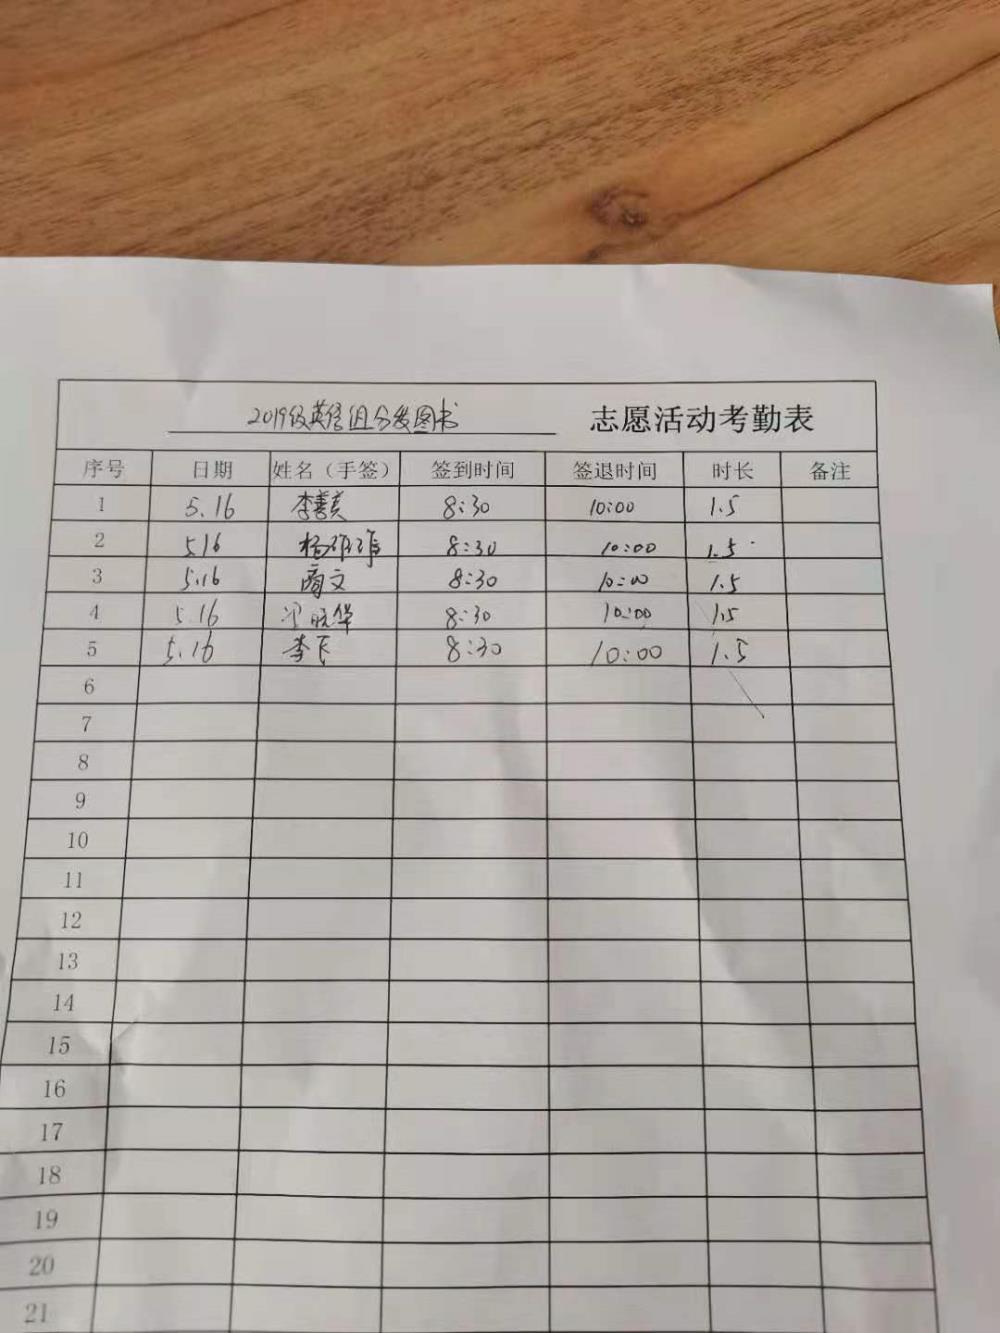 2019级英语组分发图书 志愿活动考勤表
序号 日期 姓名（手签） 签到时间 签退时间 时长 备注
1 5.16 李善美 8:30 10:00 1.5
2 5.16 8:30 10:00 1.5
3 5.16 8:30 10:00 1.5
4 5.16 8:30 10:00 1.5
5 5.16 李飞 8:30 10:00 1.5
6
7
8
9
10
11
12
13
14
15
16
17
18
19
20
21